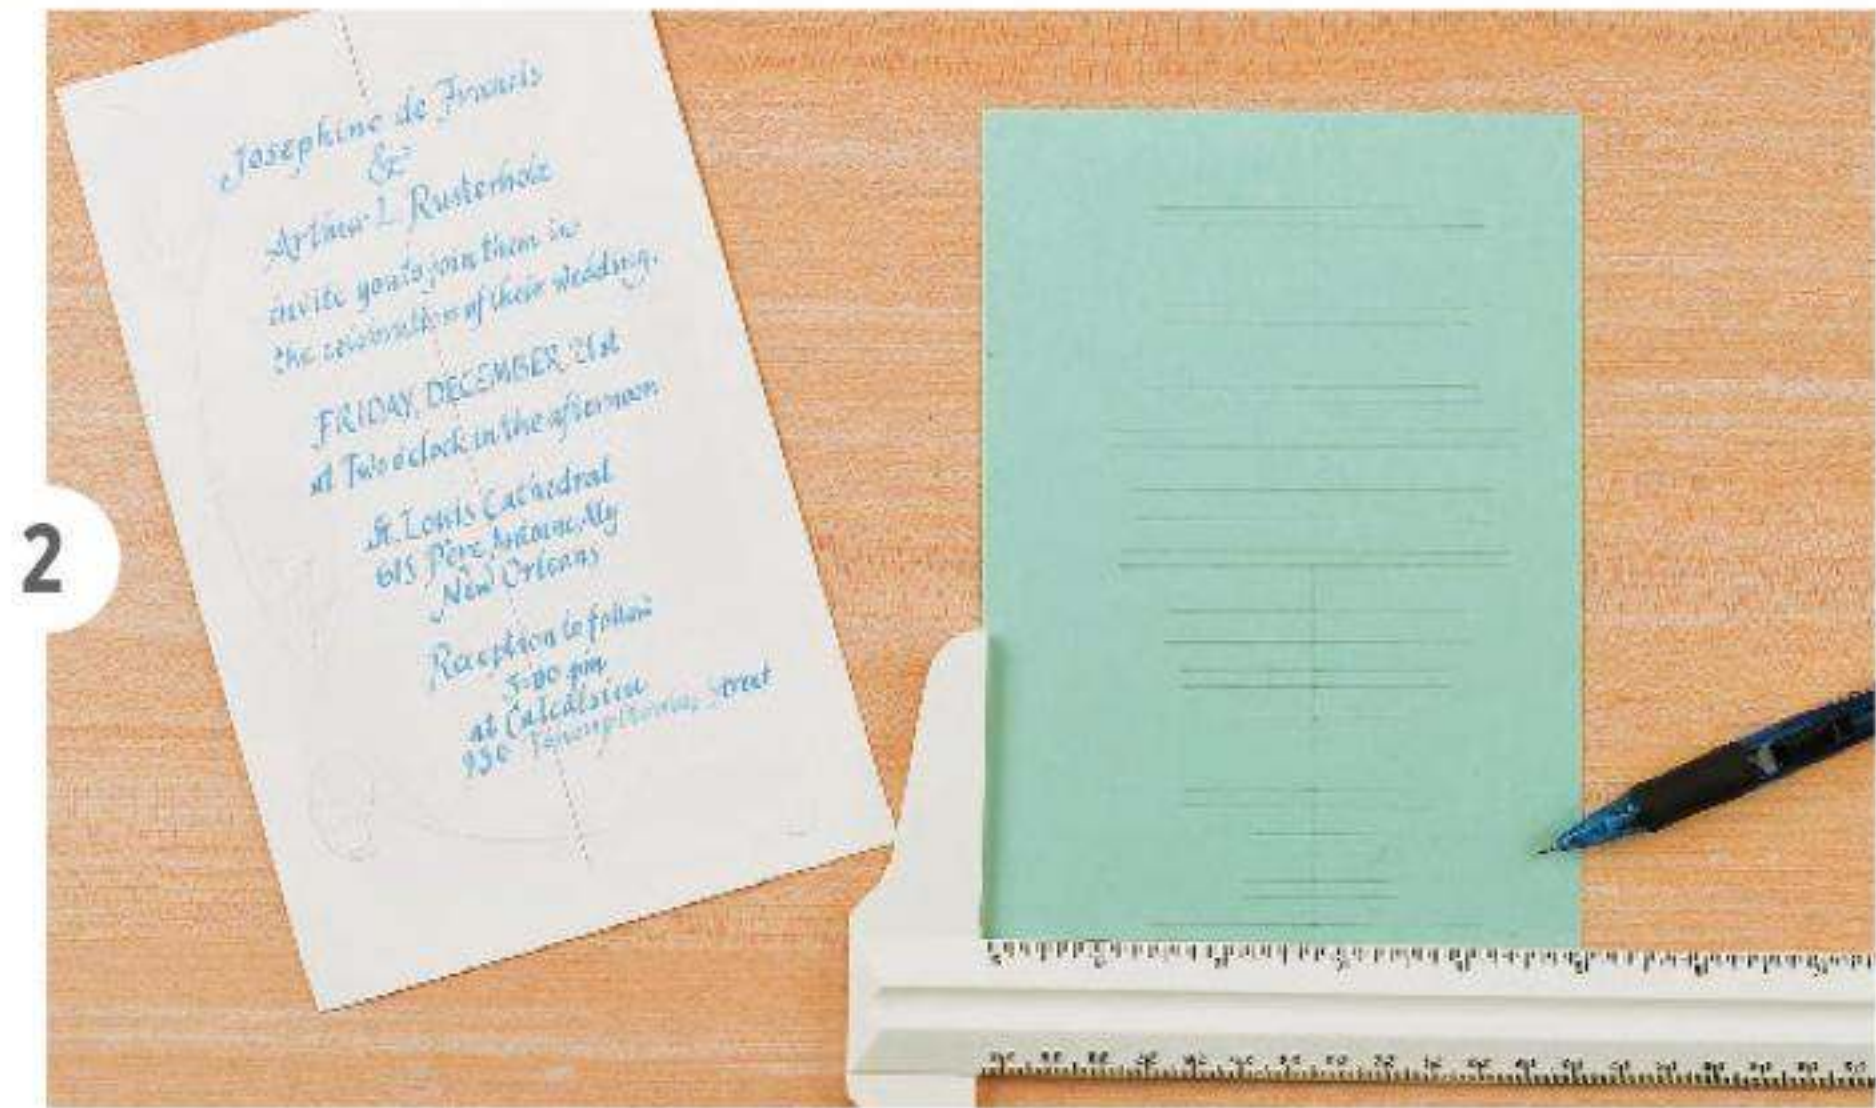 2
Josephine de Francis
&
Arthur L Rusterholz
invite you to join them in
the celebration of their wedding.
FRIDAY, DECEMBER 21st
at Two o'clock in the afternoon
St. Louis Cathedral
615 Pere Antoine Aly
New Orleans
Reception to follow
5:00 pm
at Calcasieu
930 Tchoupitoulas Street